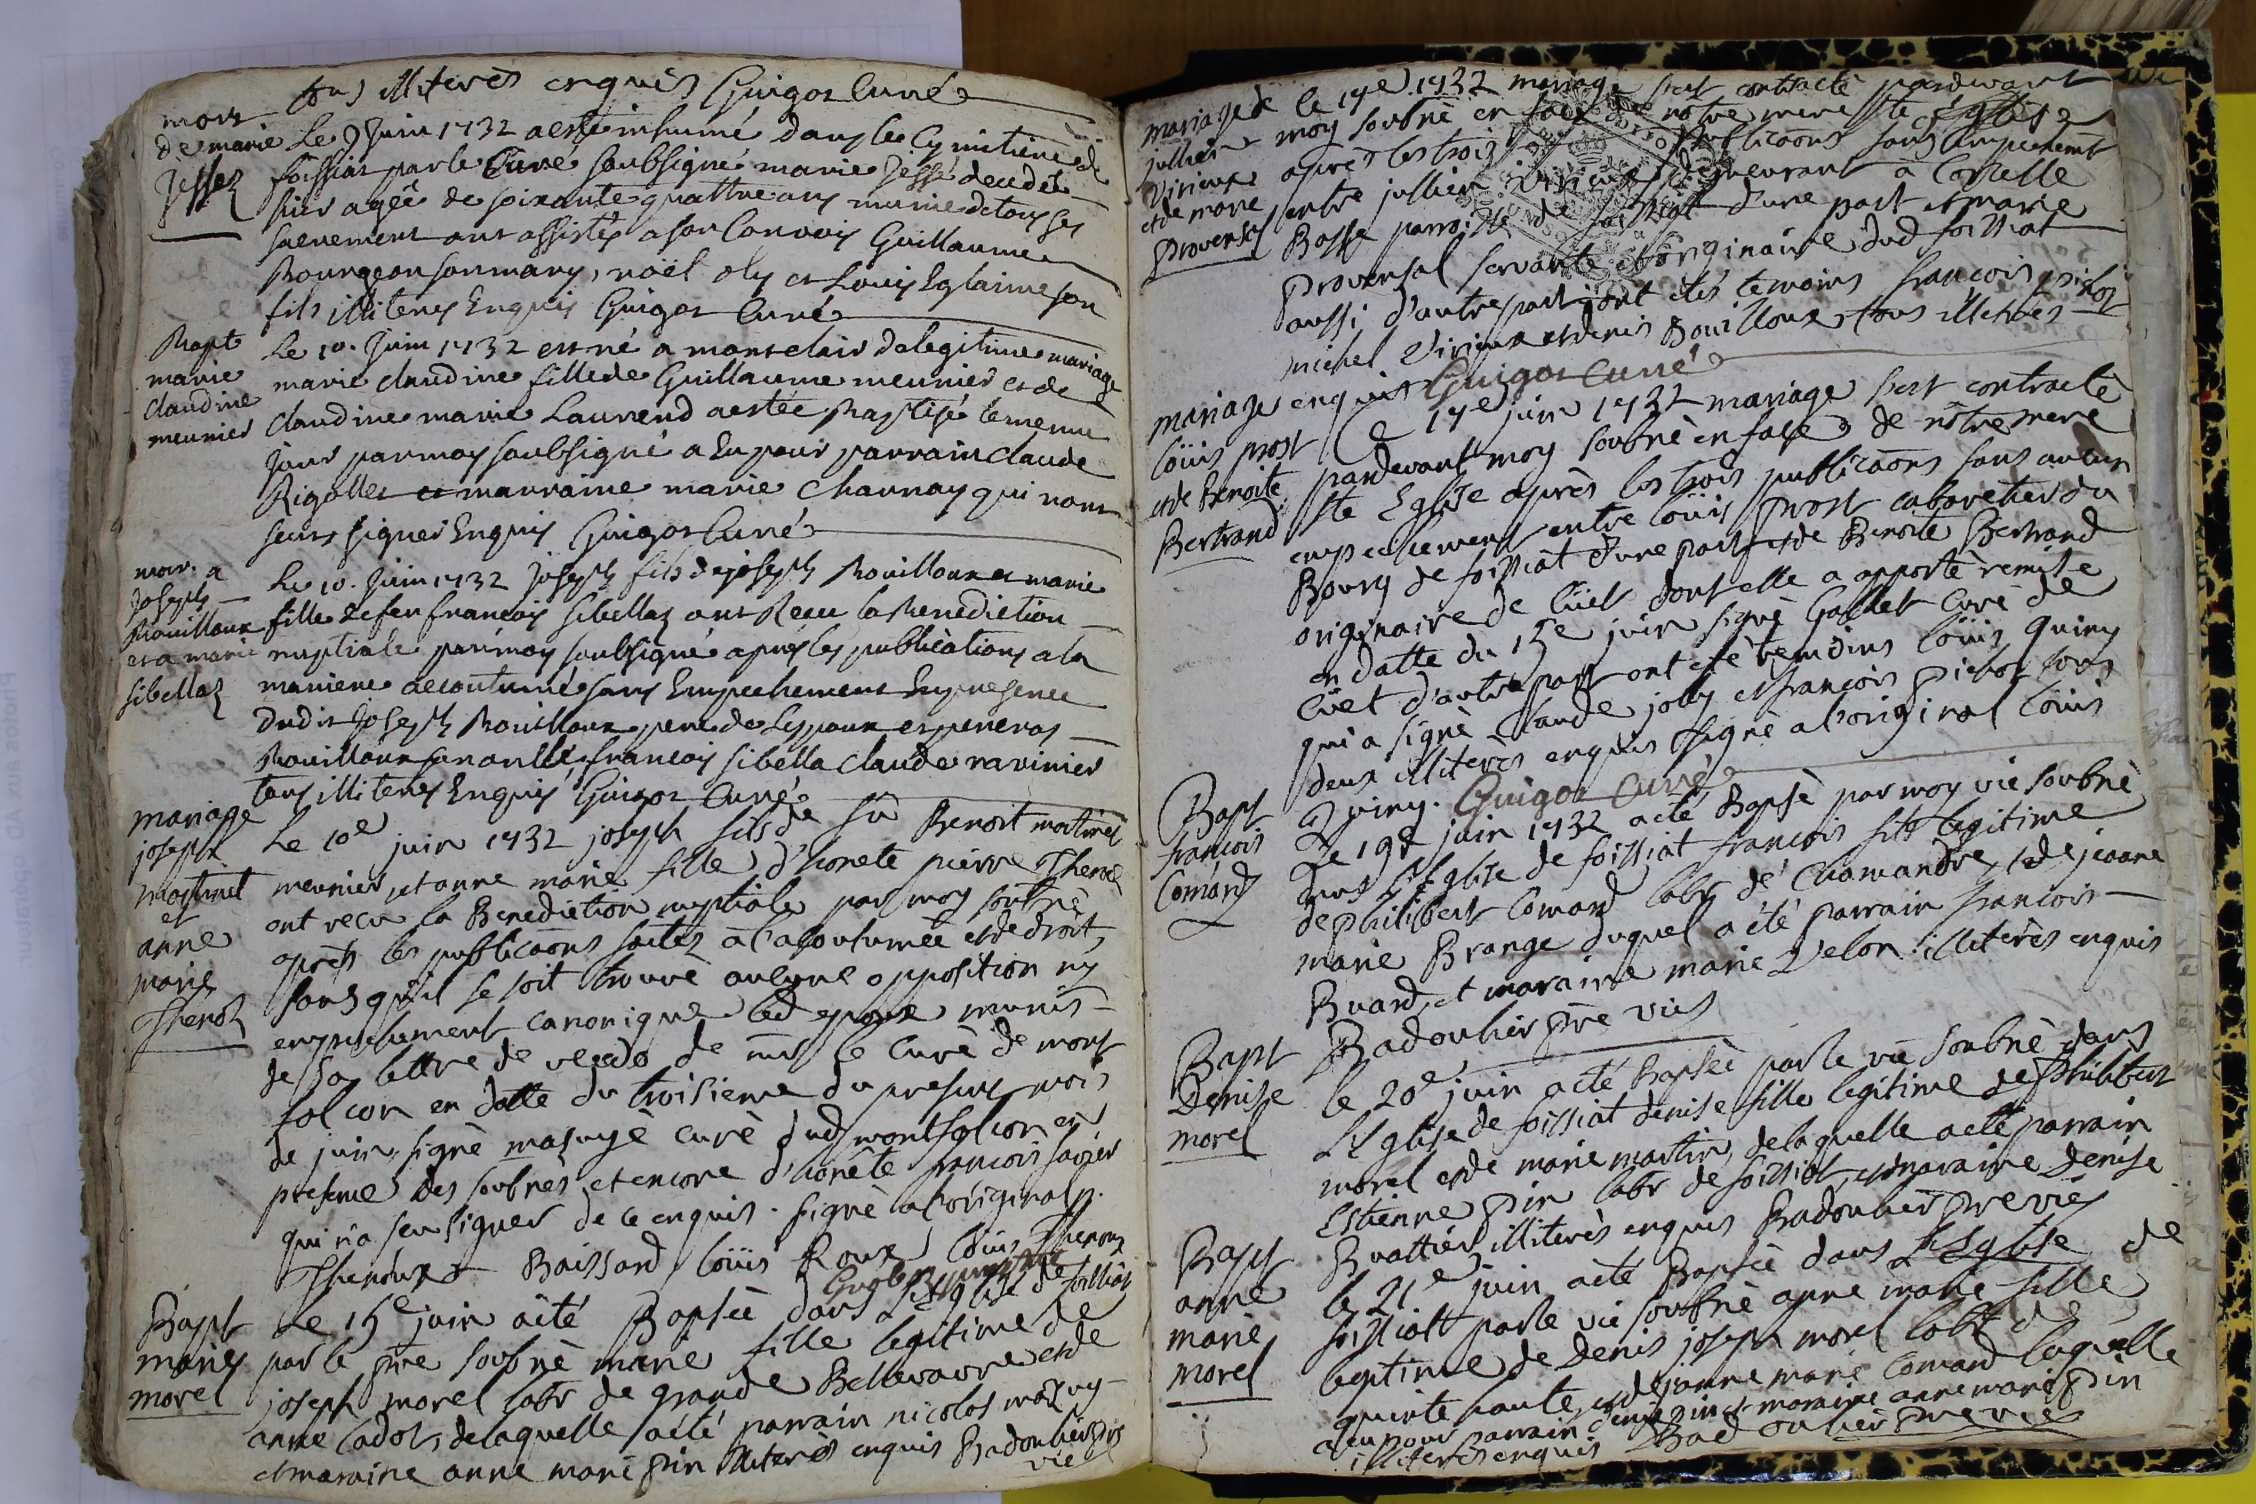 tous illiterés enquis Guigot Curé
mort
de marie
Jessez
Le 9 Juin 1732 a esté inhumé dans le Cymitiere de
foissiat par le Curé soubsigné marie Jessé decedée
hier agée de soixante quattre ans munie de tous ses
sacrements ont assistés a son Convois Guillaume
Bourgeon son mary, noël oly et Louis Eglaine son
fils illiterés Enquis Guigot Curé
Bapt
marie
claudine
meunier
Le 10. Juin 1732 est né a montclair de legitime mariage
marie claudine fille de Guillaume meunier et de
claudine marie Laurend a estée Baptisé le meme
jour par moy soubsigné a Eu pour parrain claude
Rigollet et marraine marie Charnay qui n'ont
sceus signer Enquis Guigot Curé
mar. a
Joseph
Bouilloux
et a marie
sibellaz
Le 10. Juin 1732 Joseph fils de joseph Bouilloux et marie
fille de feu francois sibellaz ont Receu la Benediction
nuptiale par moy soubsigné aprés les publications a la
maniere accoutumé sans Empechement En presence
dudit Joseph Bouilloux pere de Lepoux
Bouilloux francois sibella claude ravinier
tous illiterés Enquis Guigot Curé
mariage
joseph
martinet
et
anne
marie
Thenoz
Le 10e juin 1732 joseph fils de fû Benoit martinet
meunier, et anne marie fille d'honete pierre Thenoz
ont recu la Benediction nuptiale par moy soubnè
aprés les publicaons faites à l'acoutumée et de droit,
sans qu'il se soit trouvé aucune opposition ny
empechement canonique led epoux munis
de sa lettre de recedo de mr le Curé de mont
folcon en datte du troisieme du present mois
de juin, signé masuyé curé dud montfolcon en
presence des soubnés, et encore d'honête francois favier
qui n'a sceu signer de ce enquis. signé a l'original p.
Thenoux Boissard loüis Roux loüis Thenoux
Bapt
marie
morel
Le 15e juin a eté Bapsée dans l'Eglise de foissiat
par le pre soubnè marie fille legitime de
joseph morel labr de grande Bellevavre et de
anne Cadot, de laquelle a été parrain nicolas mazuy
et maraine anne marie pin illiterés enquis Badoulier pre
vic
mariage de
jullien
virieux
et de marie
Provensal
le 17e 1732 mariage s'est contracté pardevant
moy soubnè en face de notre mere ste Eglise
après les trois publicaons sans empechemt
entre jullien virieux demeurant à Corcelle
Basse parroisse de foissiat d'une part et marie
Provensal servante et originaire dud foissiat
aussi d'autre part, ont étés temoins francois pichoz
michel virieux et denis Bouilloux tous illiterés
enquis Guigot Curé
mariage
loüis prost
et de Benoite
Bertrand
Le 17e juin 1732 mariage s'est contractè
pardevant moy soubnè en face de nôtre mere
ste Eglise après les trois publicaons sans aucun
empechement entre loüis prost cabaretier du
Bourg de foissiat d'une part et de Benoite Bertrand
originaire de Cüet dont elle a apporté remise
en datte du 15e juin signé Gallet Curé de
Cüet d'autre part ont eté temoins loüis Quiny
qui a signè Claude joly et francois pichoz tous
deux illiterés enquis signé a l'original loüis
Quiny. Guigot Curé
Bapt
francois
Comard
Le 19e juin 1732 a eté Bapsè par moy vic soubnè
dans l'Eglise de foissiat francois fils legitime
de philibert Comard labr de Chamandre, et de jeanne
marie Brange duquel a été parrain francois
Buard, et maraine marie velon illiterés enquis
Badoulier pre vic
Bapt
Denise
morel
le 20e juin a eté Bapsée par le vic soubnè dans
l'Eglise de foissiat denise fille legitime de philibert
morel et de marie martin, de laquelle a eté parrain
Estienne pin labr de foissiat, et maraine denise
Buattier illiterés enquis Badoulier pre vic
Bapt
anne
marie
morel
le 21e juin a eté Bapsée dans l'Eglise de
foissiat par le vic soubnè anne marie fille
legitime de denis joseph morel labr de
quinte haute, et de jeanne marie Comard laquelle
a eu pour parrain denis pin et maraine anne marie pin
illiterés enquis Badoulier pre vic